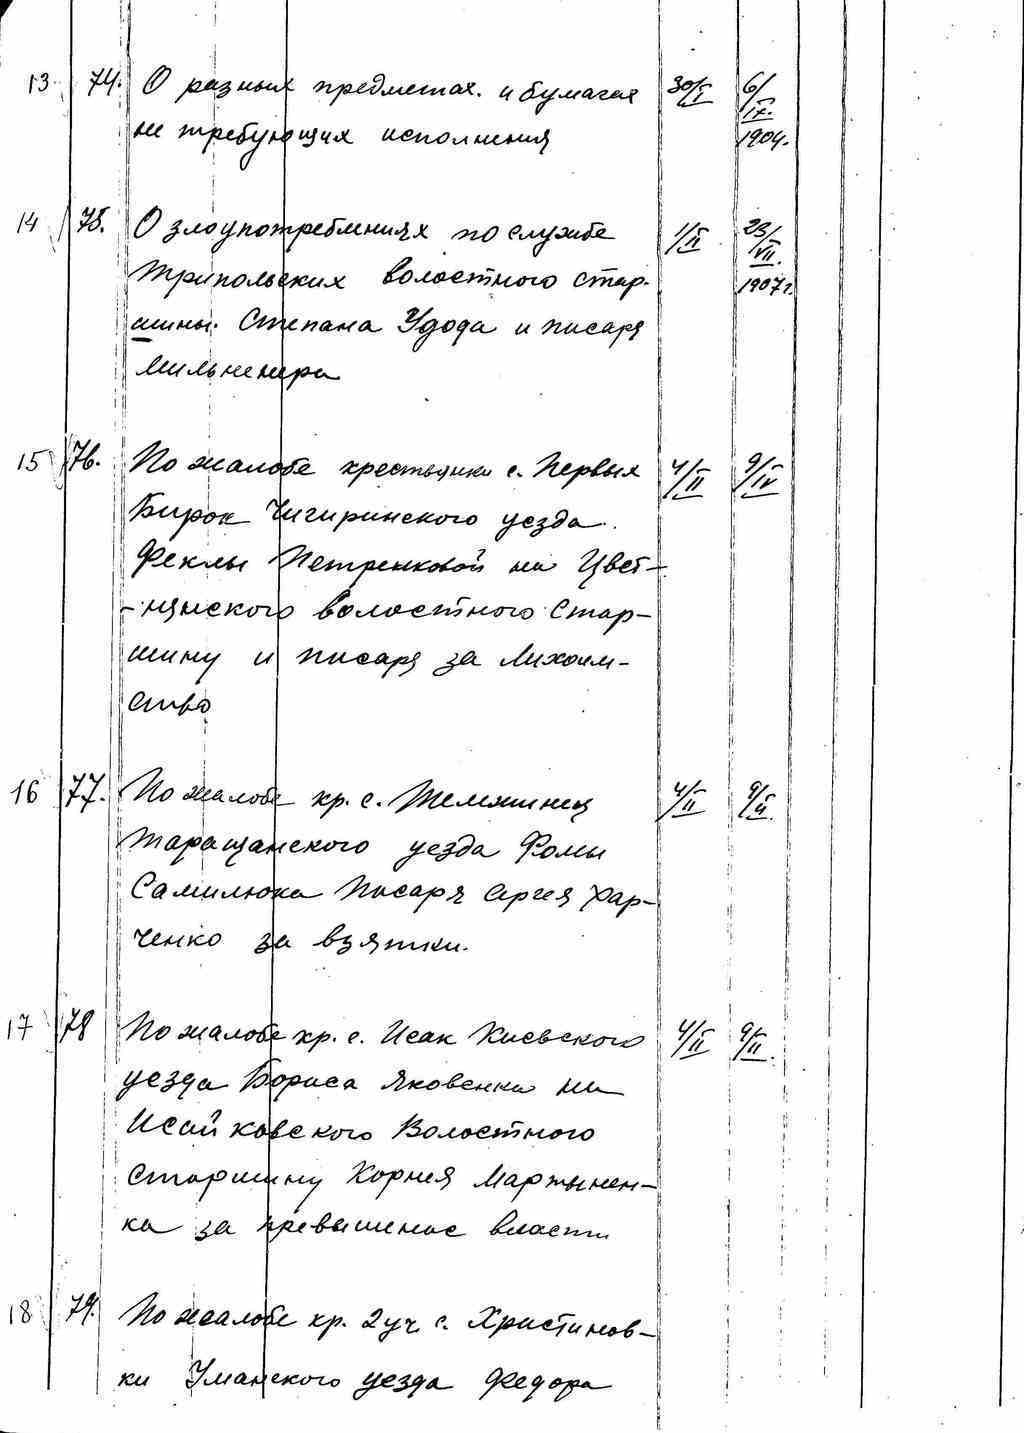 13 74. О разных предметах. и бумагах 30/I 6/IV.
не требующих исполнения 1904.
14 75. О злоупотреблениях по службе 1/II 23/VII.
Трипольских волостного стар- 1907 г.
шины. Степана Удода и писаря
Мильненера
15 76. По жалобе крестьянки с. Первых 4/II 9/IV
Бирок Чигиринского уезда.
Феклы Петренковой на Цвет-
-нянского волостного стар-
шину и писаря за Лихоим-
ство
16 77. По жалобе кр. с. Тележинец 4/II 9/II.
Таращанского уезда Фомы
Самилюка Писаря Сергея Хар-
ченко за взятки.
17 78 По жалобе кр. с. Исак Киевского 4/II 9/II.
уезда Бориса Яковенка на
Исайковского Волостного
старшину Корнея Мартынен-
ка за превышение власти
18 79. По жалобе кр. 2 уч. с. Христинов-
ки Уманского уезда Федора